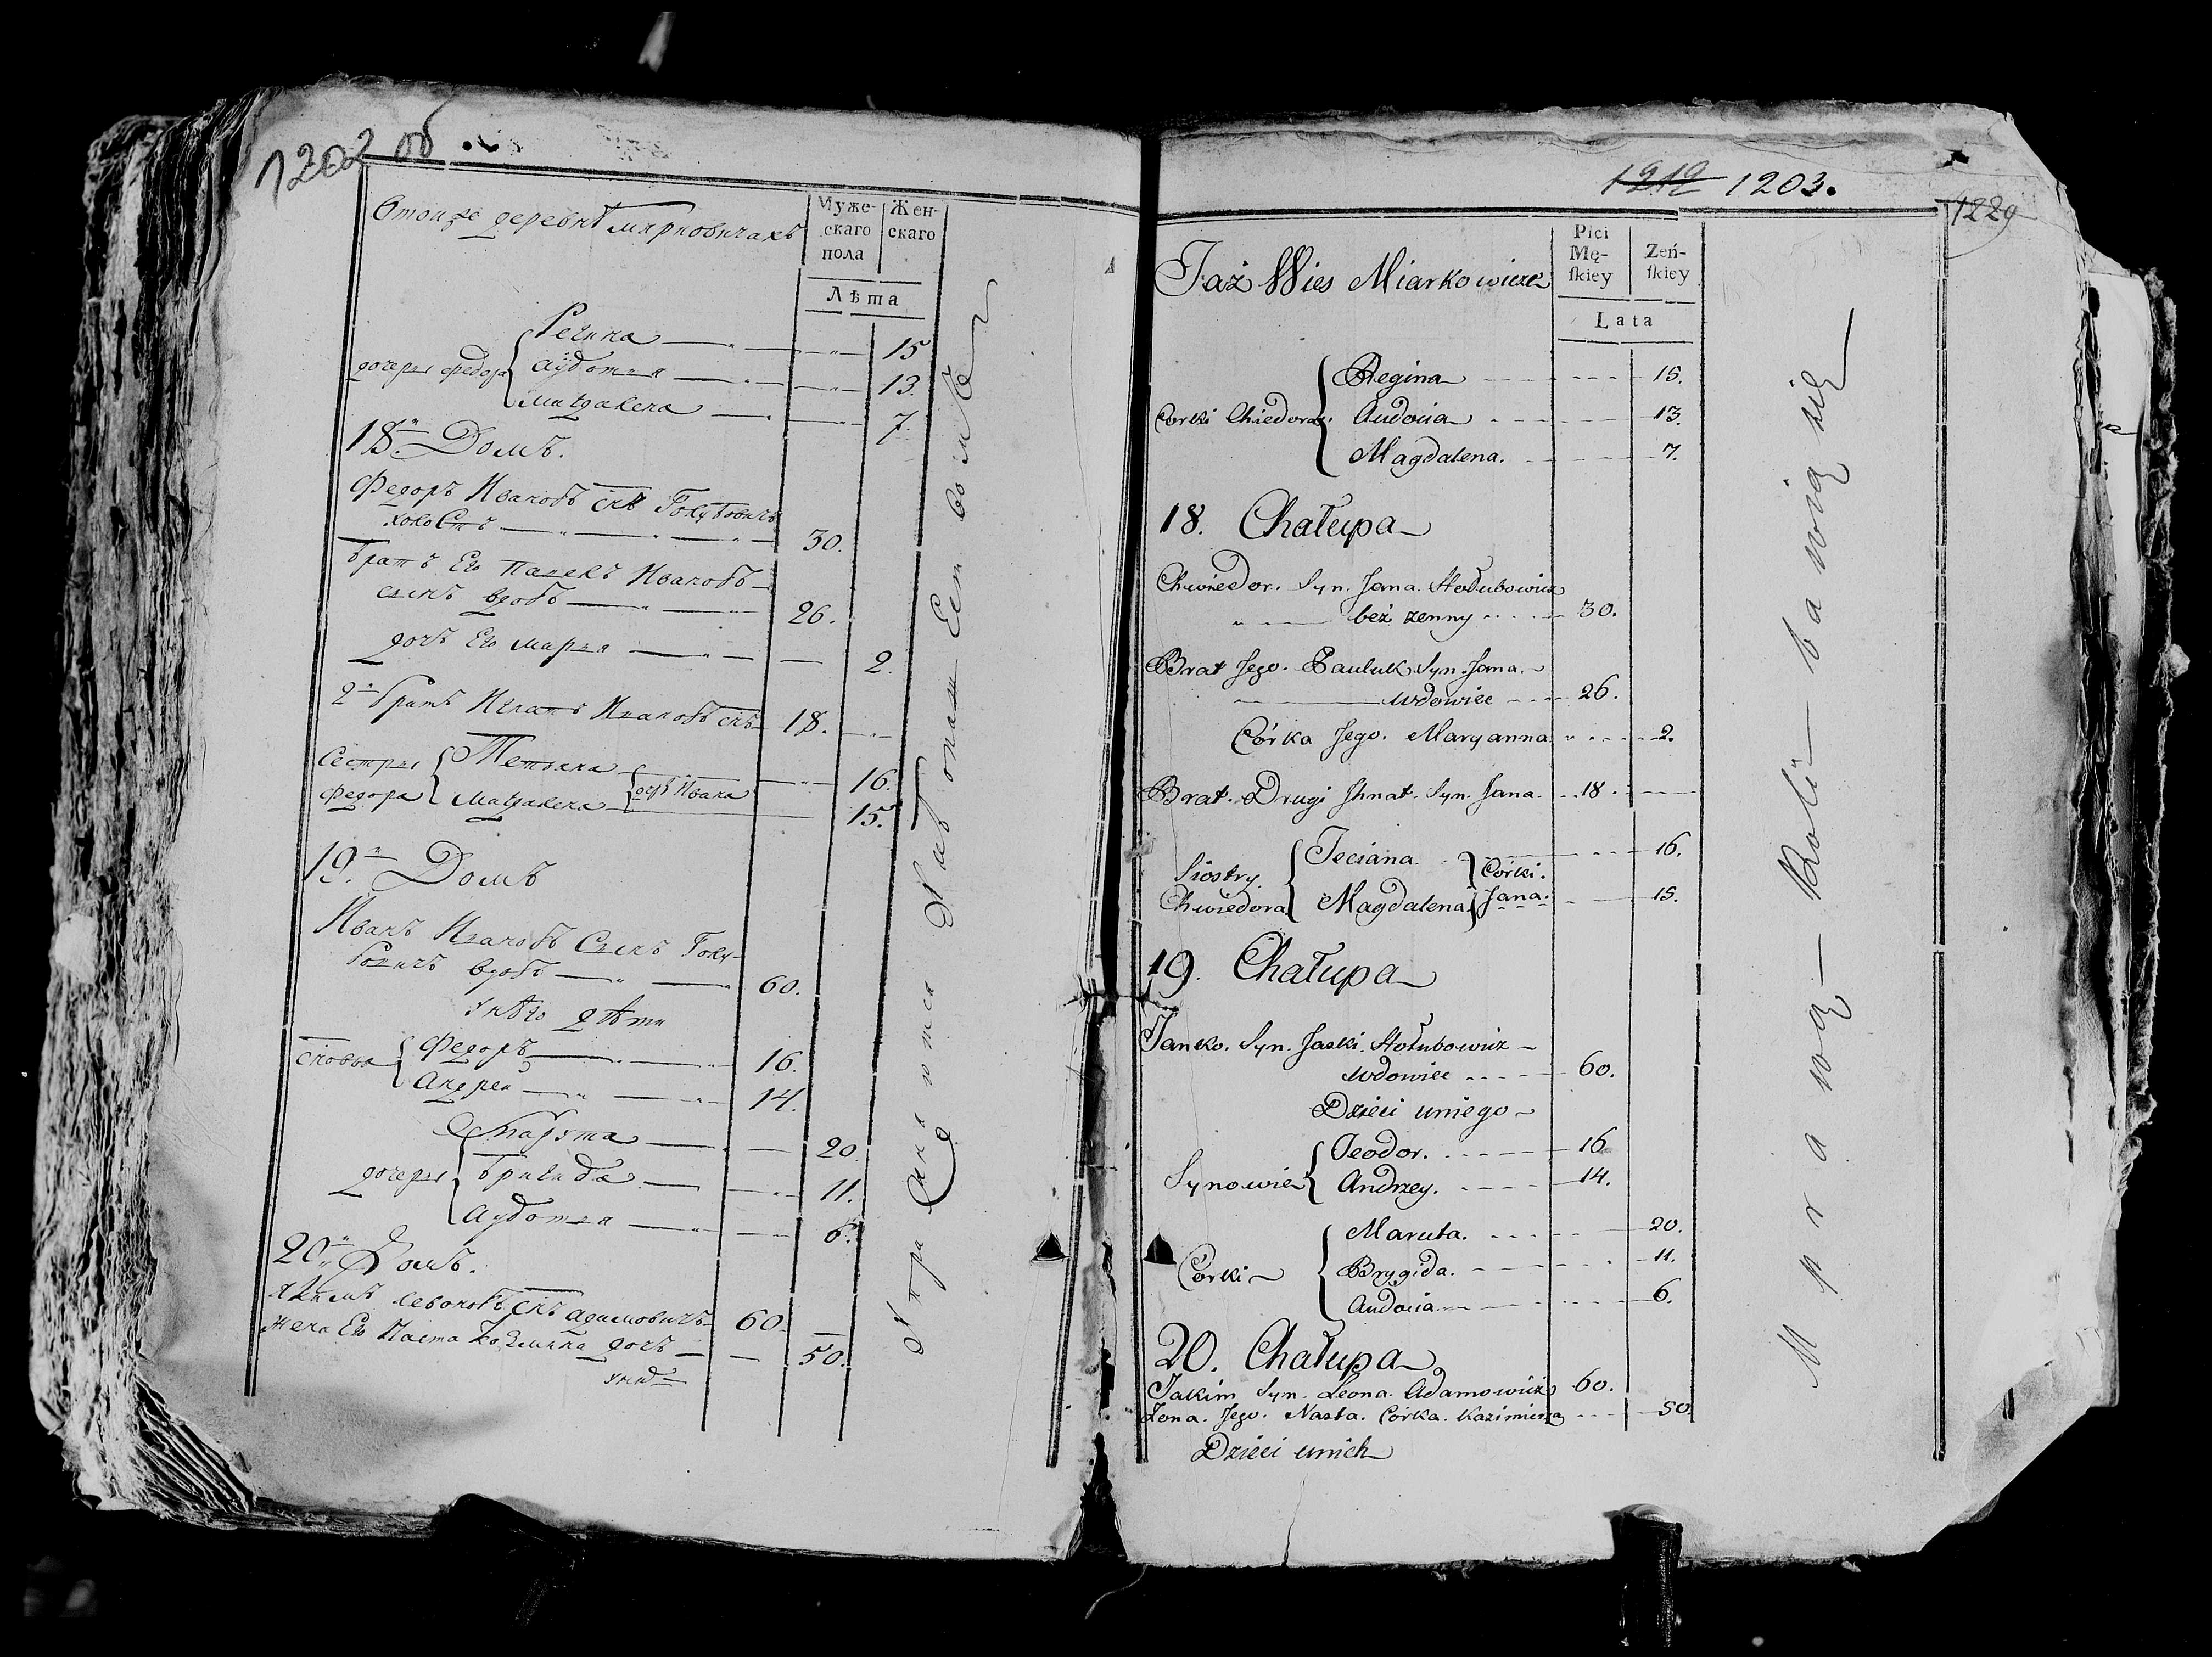 1202 об
Втой же деревнѣ мярковичахъ
Муже-
скаго
пола
Жен-
скаго
Лѣта
дочери федора
Регина 15
Аудотия 13.
Магдалена 7.
18. Домъ.
Федоръ Ивановъ снъ Голубовичъ
холостъ 30.
братъ Его Павекъ Ивановъ
сынъ вдовъ 26.
дочъ Его Мария 2.
2й братъ Игнатъ Ивановъ снъ 18.
Сестры федора
Тетьяна 16.
Магдалена 15.
дочъ Ивана
19. Домъ
Иванъ Ивановъ Сынъ Голу-
бовичъ вдовъ 60.
у него дѣти
сновья
Федоръ 16.
Андрей 14.
дочери
Марута 20
Бригида 11.
Аудотия 6.
20. Домъ.
Якимъ Левоновъ снъ адамовичъ 60.
жена Его Наста дочъ 50.
1212 1203.
1229
Taż Wies Miarkowicze
Płci
Mę-
ſkiey
Zeń-
ſkiey
Lata
Corki Chiedora
Regina 15.
Audocia 13.
Magdalena. 7.
18. Chałupa
Chwiedor. Syn. Jana. Hołubowicz
beż zenny 30.
Brat Jego. Pauluk Syn. Jana.
wdowiec 26.
Córka Jego. Maryanna 2.
Brat. Drugi Ihnat. Syn. Jana. 18.
Siostry
Chwiedora
Teciana. 16.
Magdalena 15.
Córki.
Jana.
19. Chałupa
Janko. Syn. Jaśki. Hołubowicz
wdowiec 60.
Dzieci uniego
Synowie
Teodor. 16.
Andrzey. 14.
Corki
Maruta. 20.
Brygida. 11.
Audocia 6.
20. Chałupa
Jakim Syn. Leona. Adamowicz 60.
Zona. Jego. Nasta. Córka. Kazimierza 50.
Dzieci unich
Uprawą Roli bawią się